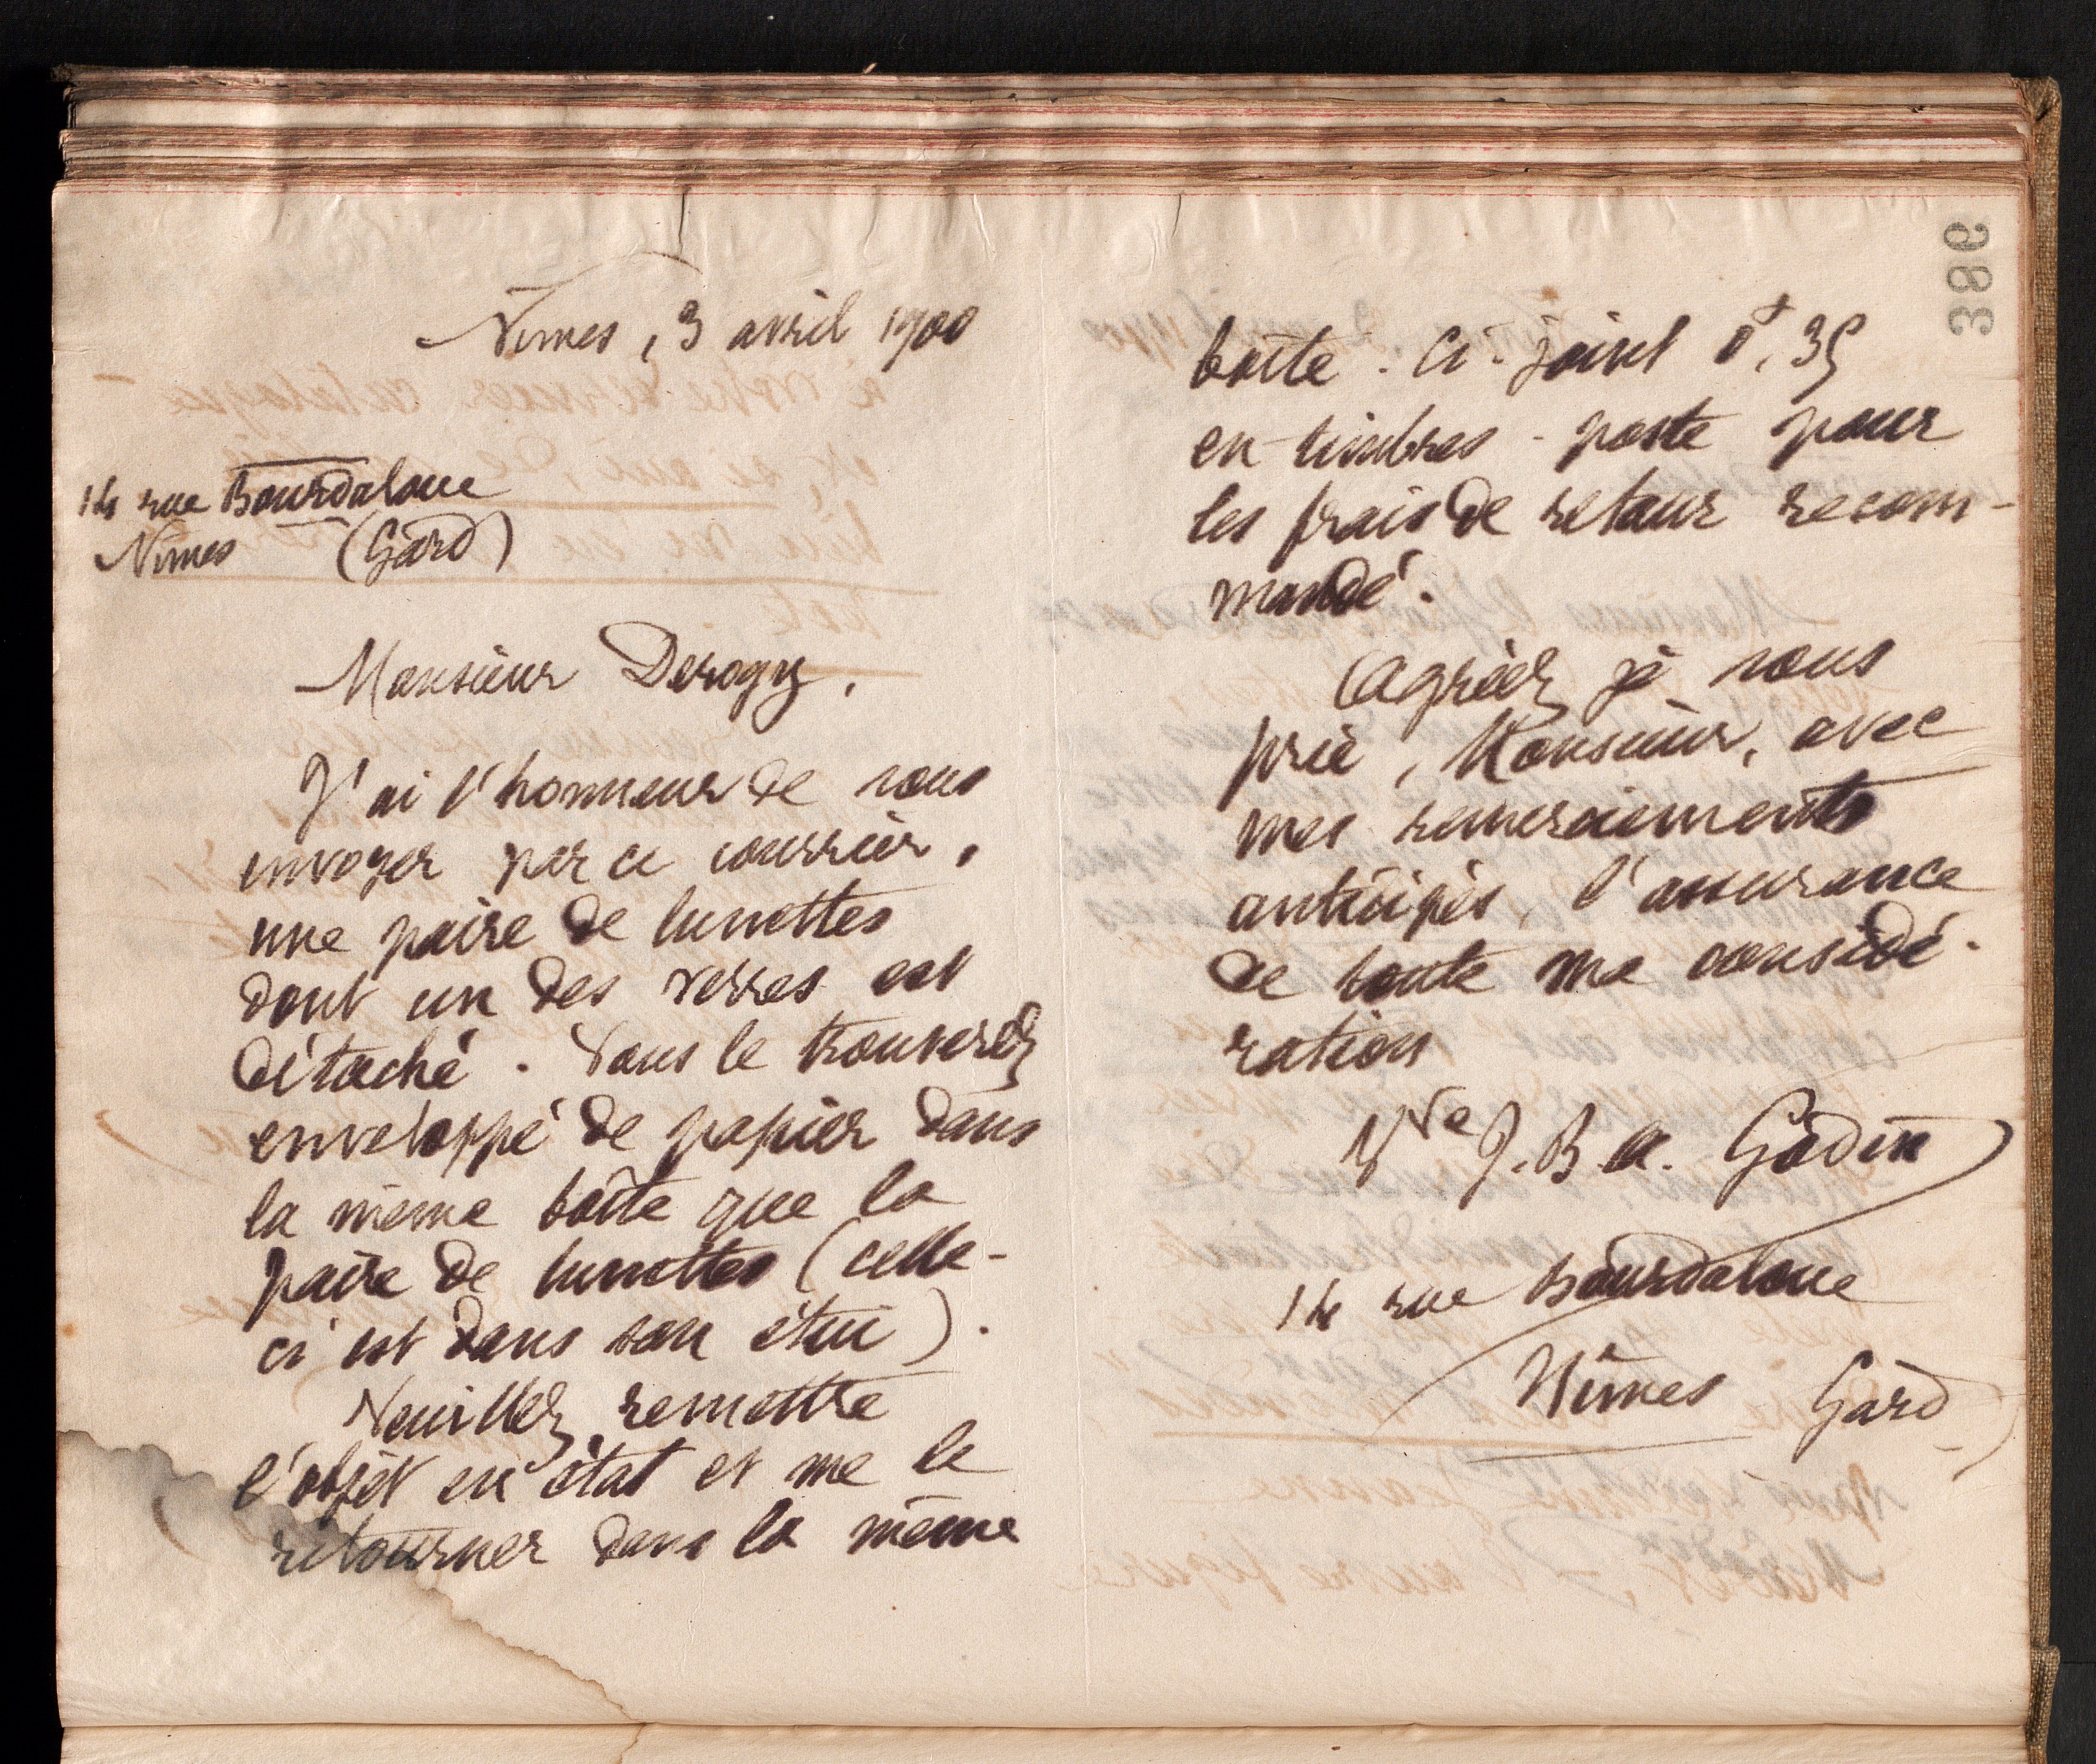 Nîmes, 3 avril 1900
14 rue Bourdaloue
Nîmes (Gard)
Monsieur Derogy,
J'ai l'honneur de vous
envoyer par ce courrier,
une paire de lunettes
dont un des verres est
détaché. Vous le trouverez
enveloppé de papier dans
la même boîte que la
paire de lunettes (celle-
ci est dans son étui).
Veuillez remettre
l'objet en état et me le
retourner dans la même
boîte. Ci-joint 0f,35
en timbres-poste pour
les frais de retour recom-
mandé.
Agréez je vous
prie, Monsieur, avec
mes remerciements
anticipés, l'assurance
de toute ma considé-
ration
Vve J. B. A. Godin
14 rue Bourdaloue
Nîmes Gard
386